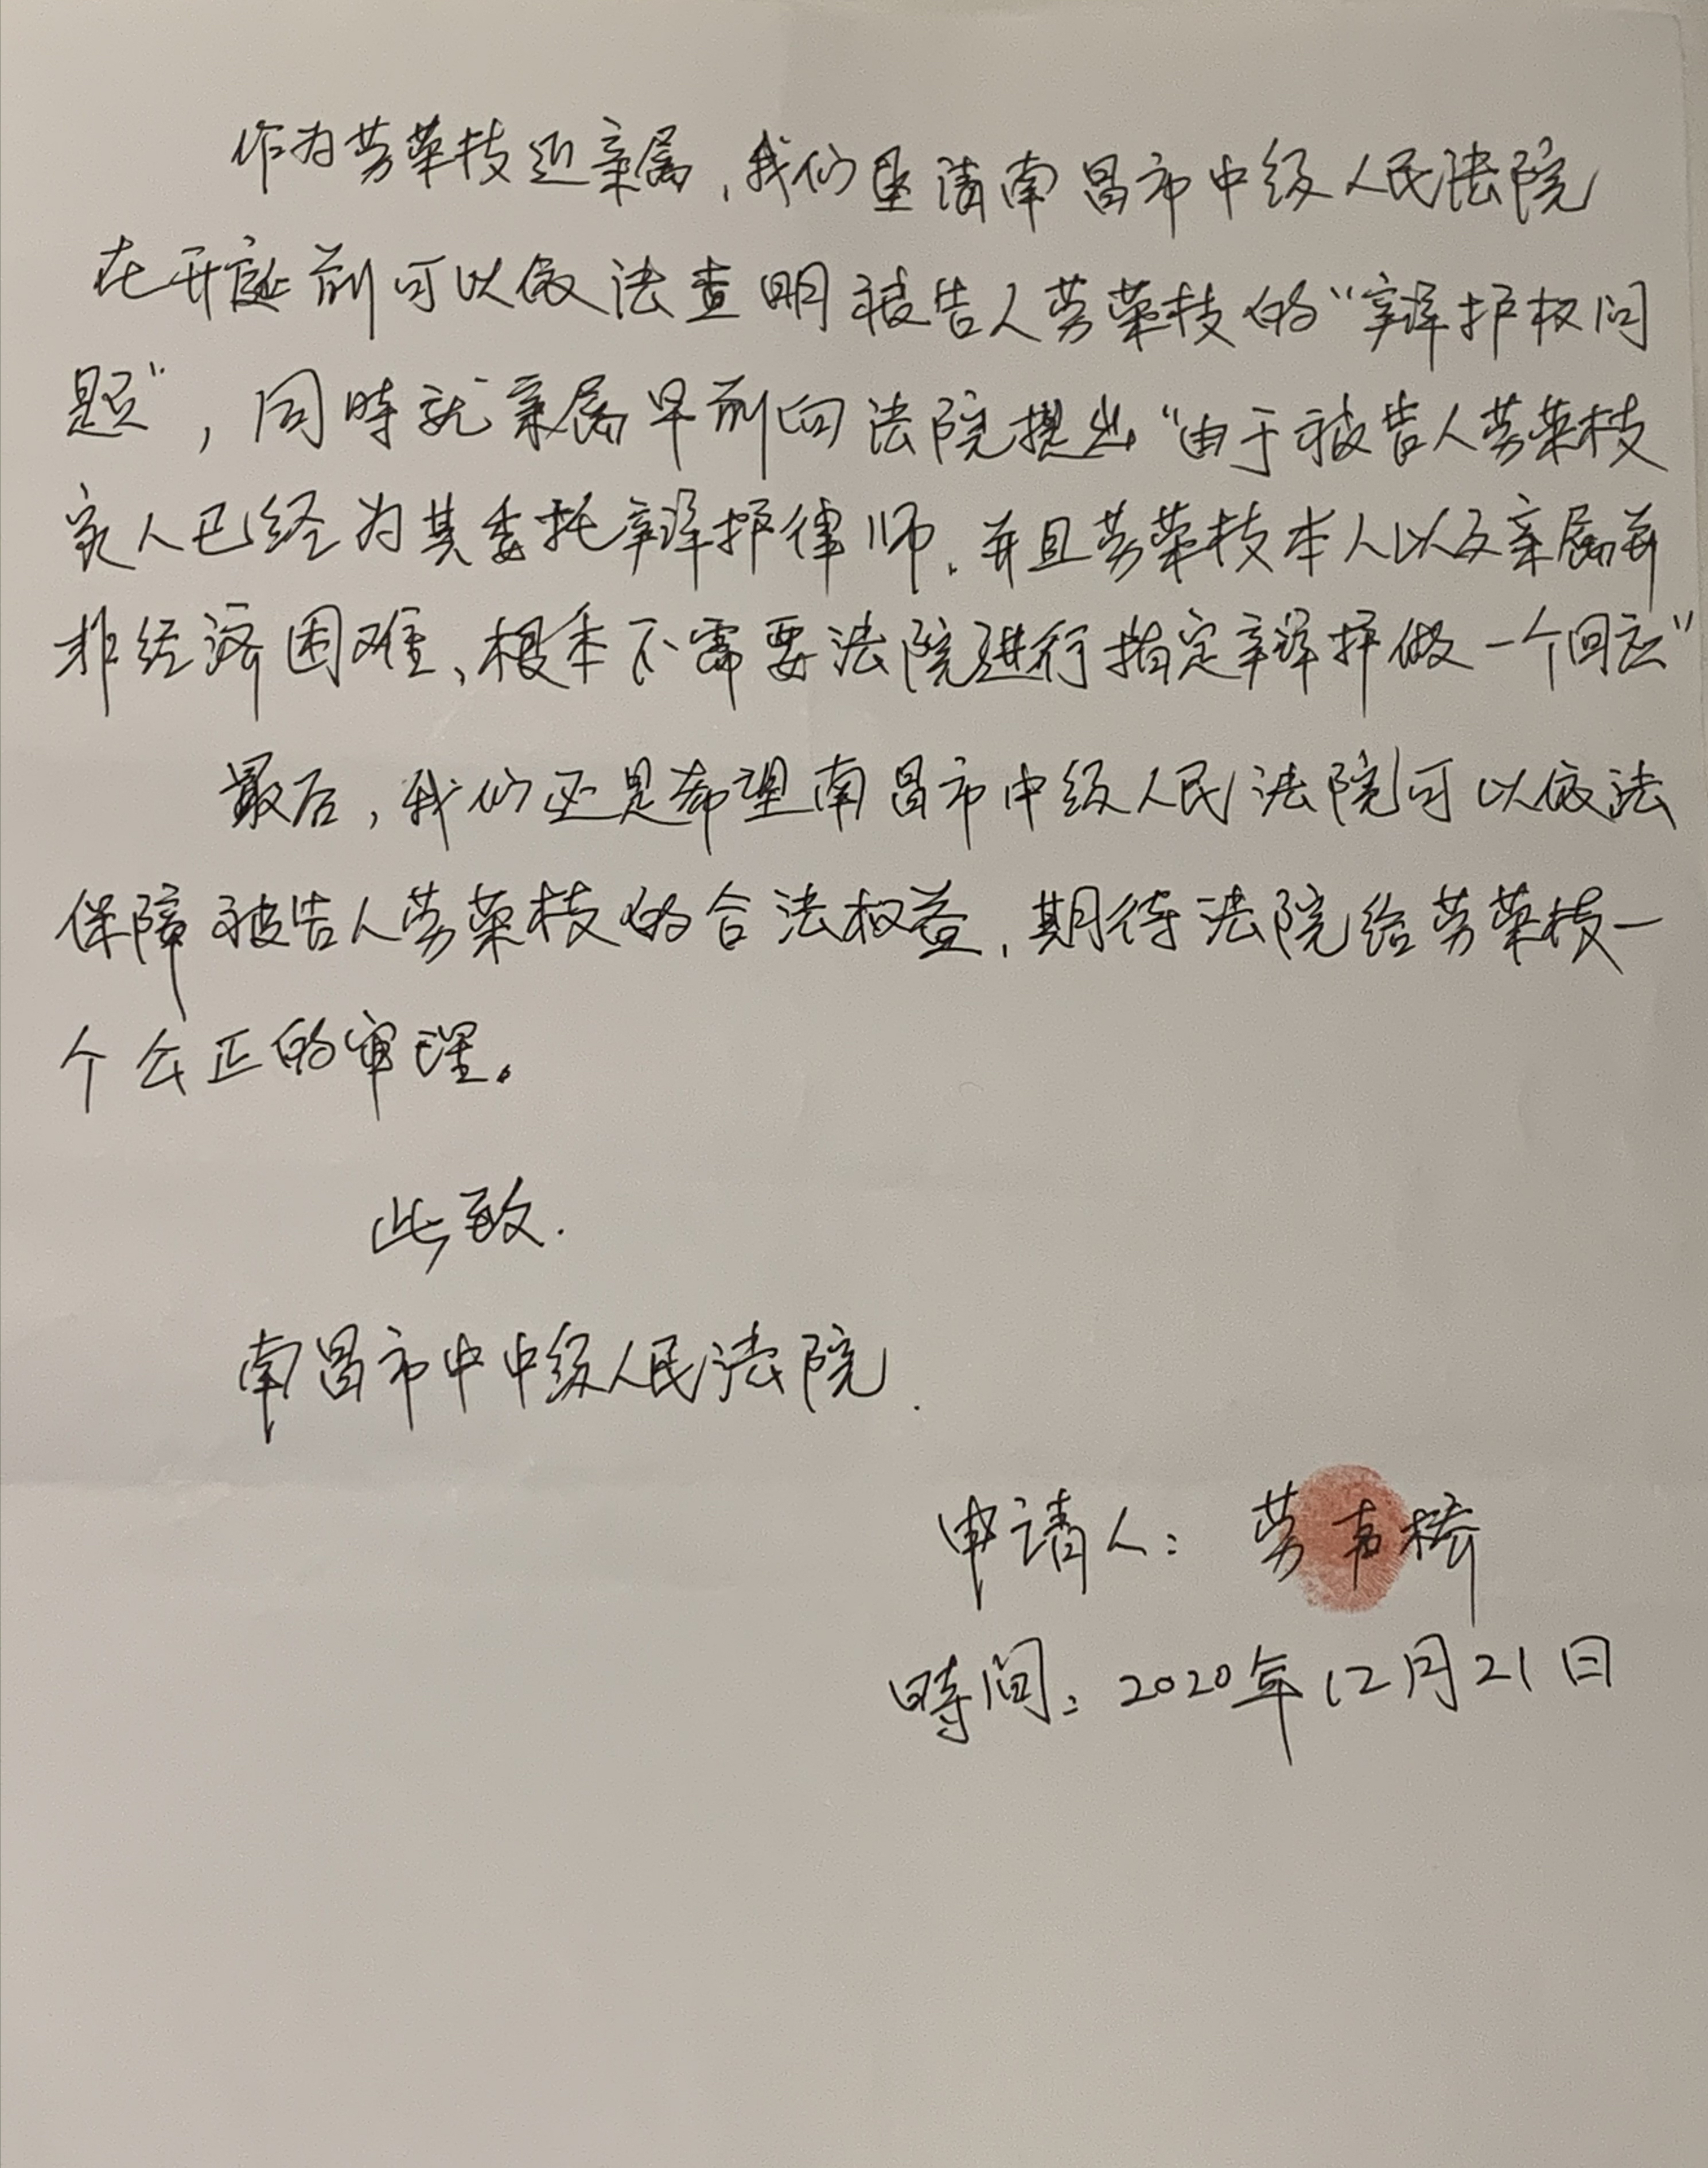 作为劳荣枝近亲属，我们恳请南昌市中级人民法院
在开庭前可以依法查明被告人劳荣枝的“辩护权问
题”，同時就亲属早前向法院提出“由于被告人劳荣枝
家人已经为其委托辩护律师，并且劳荣枝本人以及亲属并
非经济困难，根本不需要法院进行指定辩护做一个回应”
最后，我们还是希望南昌市中级人民法院可以依法
保障被告人劳荣枝的合法权益，期待法院给劳荣枝一
个公正的审理。
此致.
南昌市中中级人民法院.
申请人：劳声桥
時间：2020年12月21日